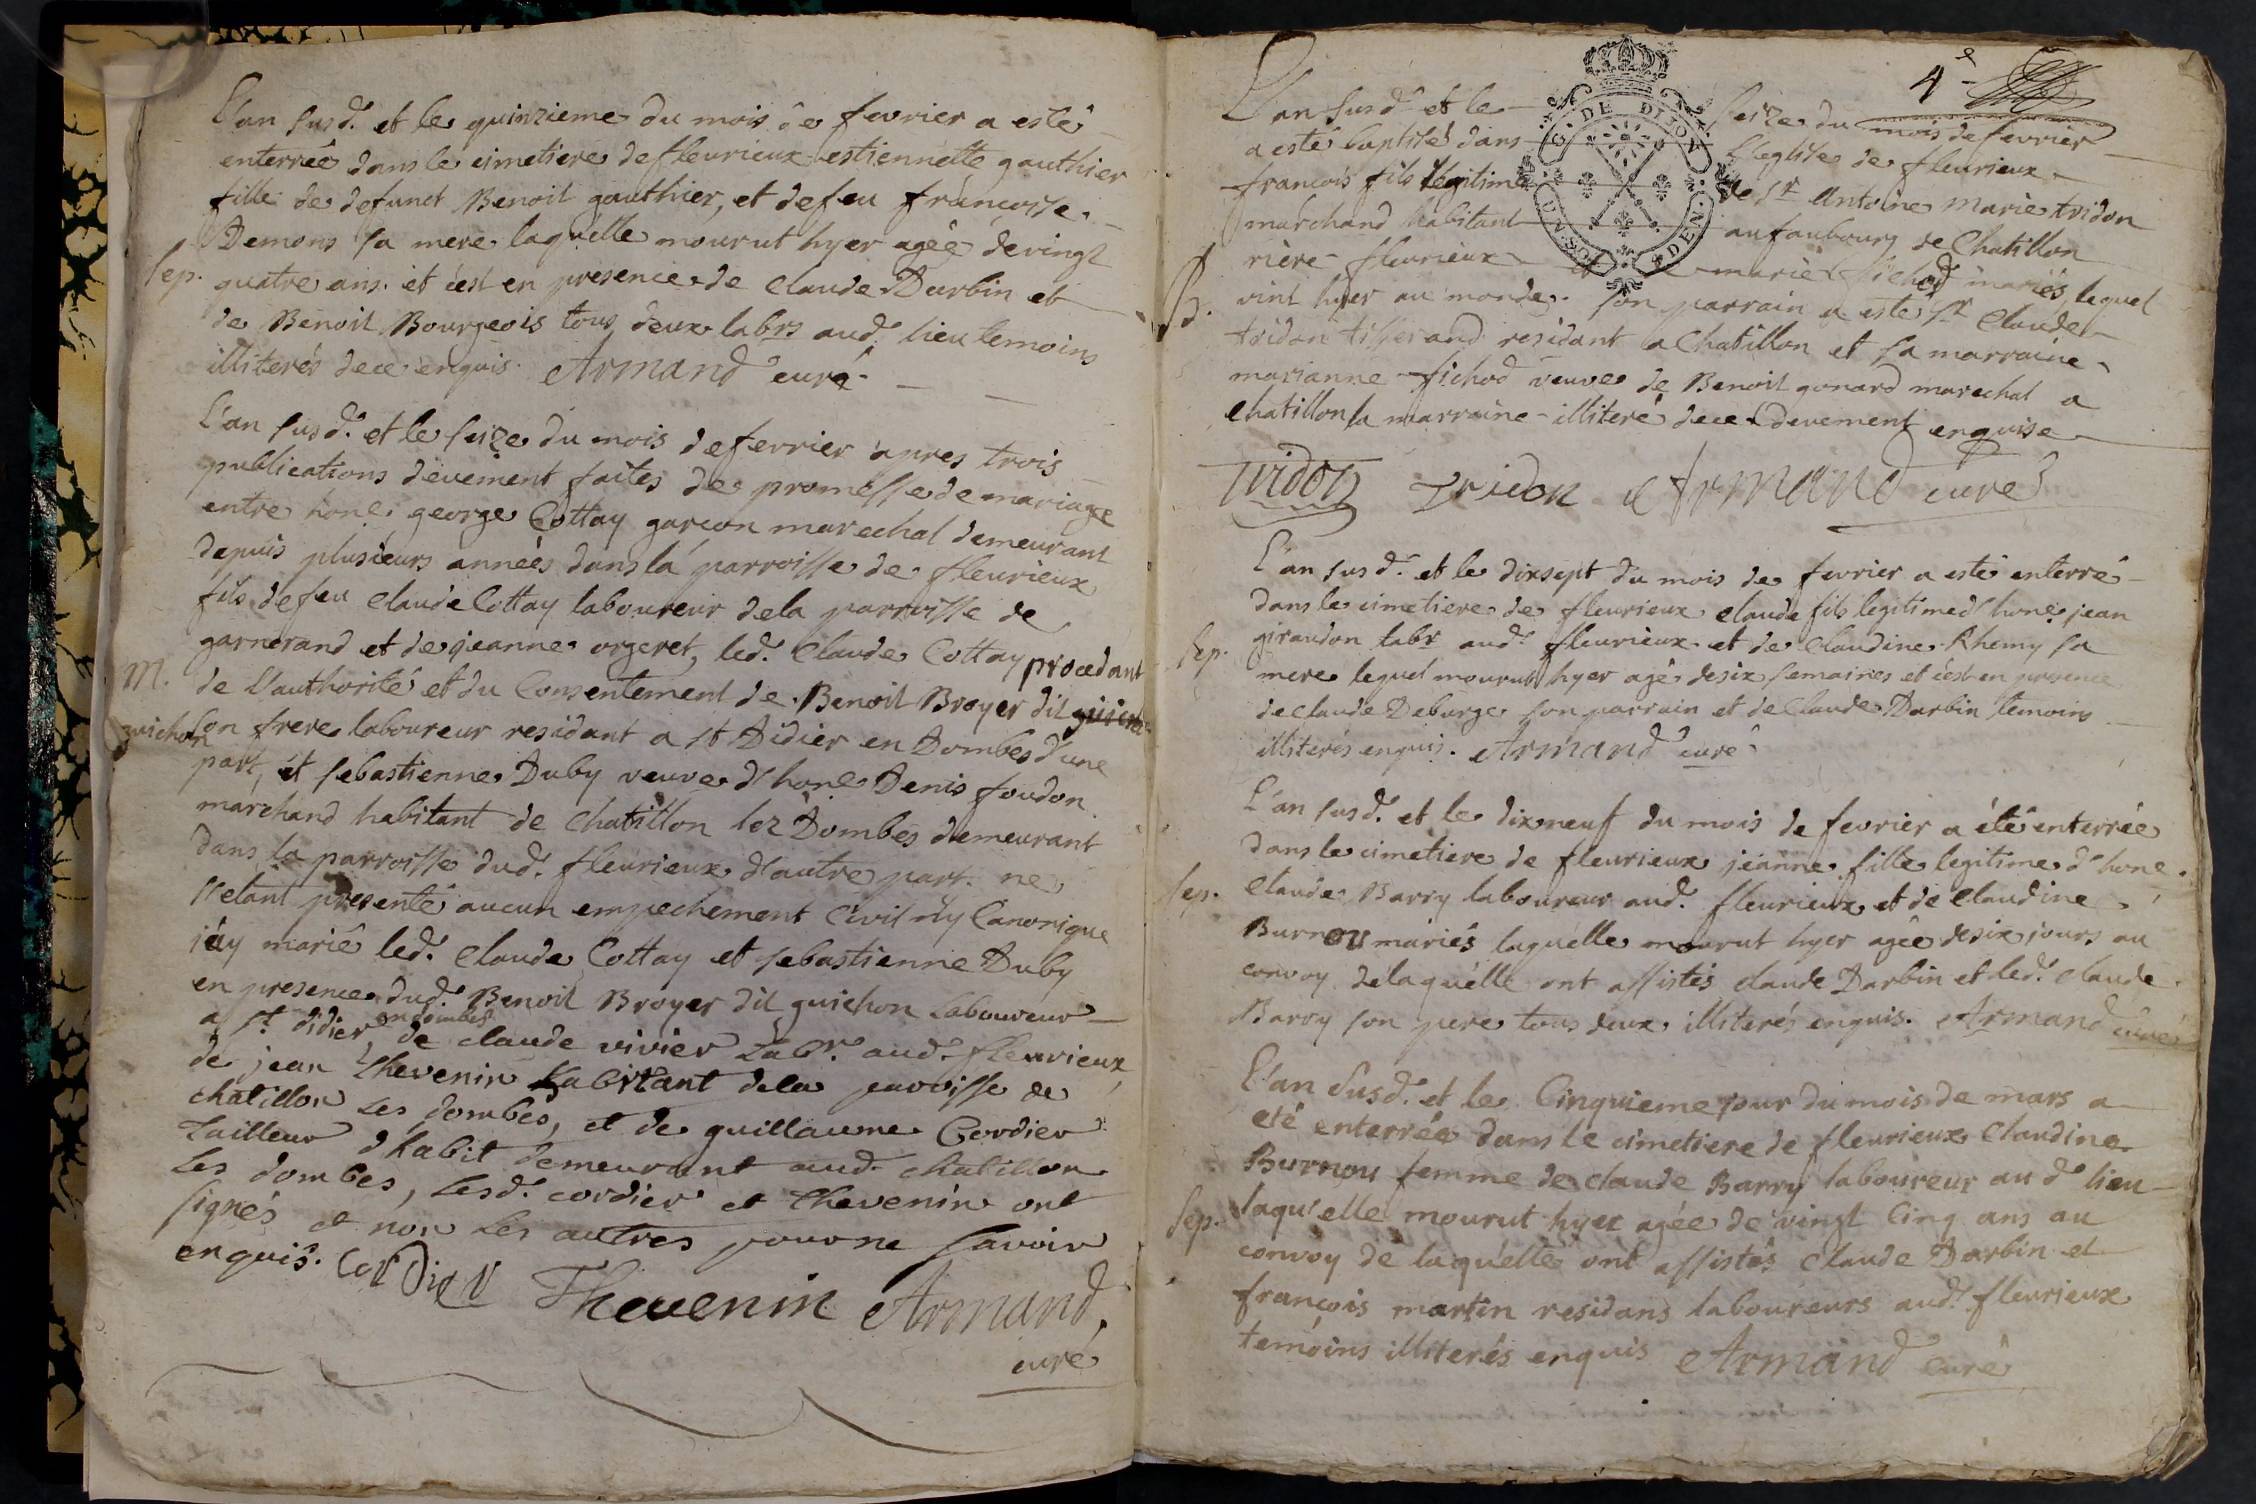 L'an susd. et le quinzieme du mois de fevrier a esté
enterrée dans le cimetiere de fleurieux estiennette gauthier
fille de defunct Benoit gauthier, et de feu francoise
Demons sa mere laquelle mourut hyer agée de vingt
Sep. quatre ans. et c'est en presence de Claude Darbin et
de Benoit Bourgeois tous deux labrs aud. lieu temoins
illiterés de ce enquis. Armand curé
L'an susd. et le seize du mois de fevrier apres trois
publications dëvement faites de promesse de mariage
entre hone george Cottay garcon marechal demeurant
depuis plusieurs années dans la parroisse de fleurieux
fils de feu Claude Cottay laboureur de la parroisse de
garnerand et de jeanne orgeret, led. Claude Cottay procedant
M. de l'authorité et du Consentement de Benoit Broyer dit
guichon son frere laboureur residant a st Didier en Dombes d'une
part, et sebastienne Duby veuve d'hone Denis foudon
marchand habitant de Chatillon lez Dombes demeurant
dans la parroisse dud. fleurieux d'autre part. ne
s'etant presenté aucun empechement Civil ny Canonique
j'ay marié led. Claude Cottay et sebastienne Duby
en presence dud. Benoit Broyer dit guichon Laboureur
a st didier en dombes de claude vivier Labr. aud. fleurieux
de jean thevenin habitant dela paroisse de
chatillon Les dombes, et de guillaume Cordier
tailleur d'habit demeurant aud. chatillon
Les dombes, Lesd. cordier et thevenin ont
signés et non Les autres pour ne savoir
enquis. Cordier Thevenin Armand
curé
4e
L'an susd. et le seize du mois de fevrier
a esté baptisé dans l'eglise de fleurieux
francois fils legitime de sr Antoine Marie tridon
marchand habitant au faubourg de Chatillon
G. DE DIJON
rière fleurieux et marie fichod mariés, lequel
B. vint hyer au monde. son parrain a esté sr Claude
tridon tisserand residant a Chatillon et sa marraine
marianne fichod veuve de Benoit gonard marechal a
Chatillon la marraine illiteré de ce devement enquise
Tridon Tridon Armand curé
L'an susd. et le dixsept du mois de fevrier a esté enterré
dans le cimetiere de fleurieux claude fils legitime d'hone jean
Sep. giraudon labr aud. fleurieux et de Claudine Rhemy sa
mere lequel mourut hyer agé de six semaines et c'est en presence
de Claude Deburge son parrain et de Claude Darbin temoins
illiterés enquis. Armand curé
L'an susd. et le dix neuf du mois de fevrier a été enterrée
dans le cimetiere de fleurieux jeanne fille legitime d'hone
Sep. Claude Barry laboureur aud. fleurieux et de Claudine
Burnou mariés laquelle mourut hyer agée de six jours au
convoy de laquélle ont assistés claude Darbin et led. Claude
Barry son pere tous deux illiterés enquis. Armand curé
L'an Susd. et le Cinquieme jour du mois de mars a
eté enterrée dans le cimetiere de fleurieux Claudine
Burnou femme de claude Barry laboureur aud. lieu
Sep. laqu'elle mourut hyer agée de vingt Cinq ans au
convoy de laquélle ont assistés Claude Darbin et
françois martin residans laboureurs aud. fleurieux
temoins illiterés enquis Armand Curé